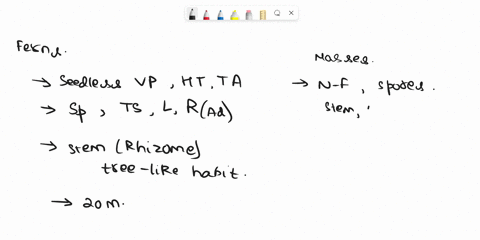 Ferns.
→ Seedless VP, HT, TA
→ Sp, TS, L, R(Ad)
→ stem (Rhizome)
tree-like habit.
→ 20m.
Mosses.
→ N-F, spores.
stem,